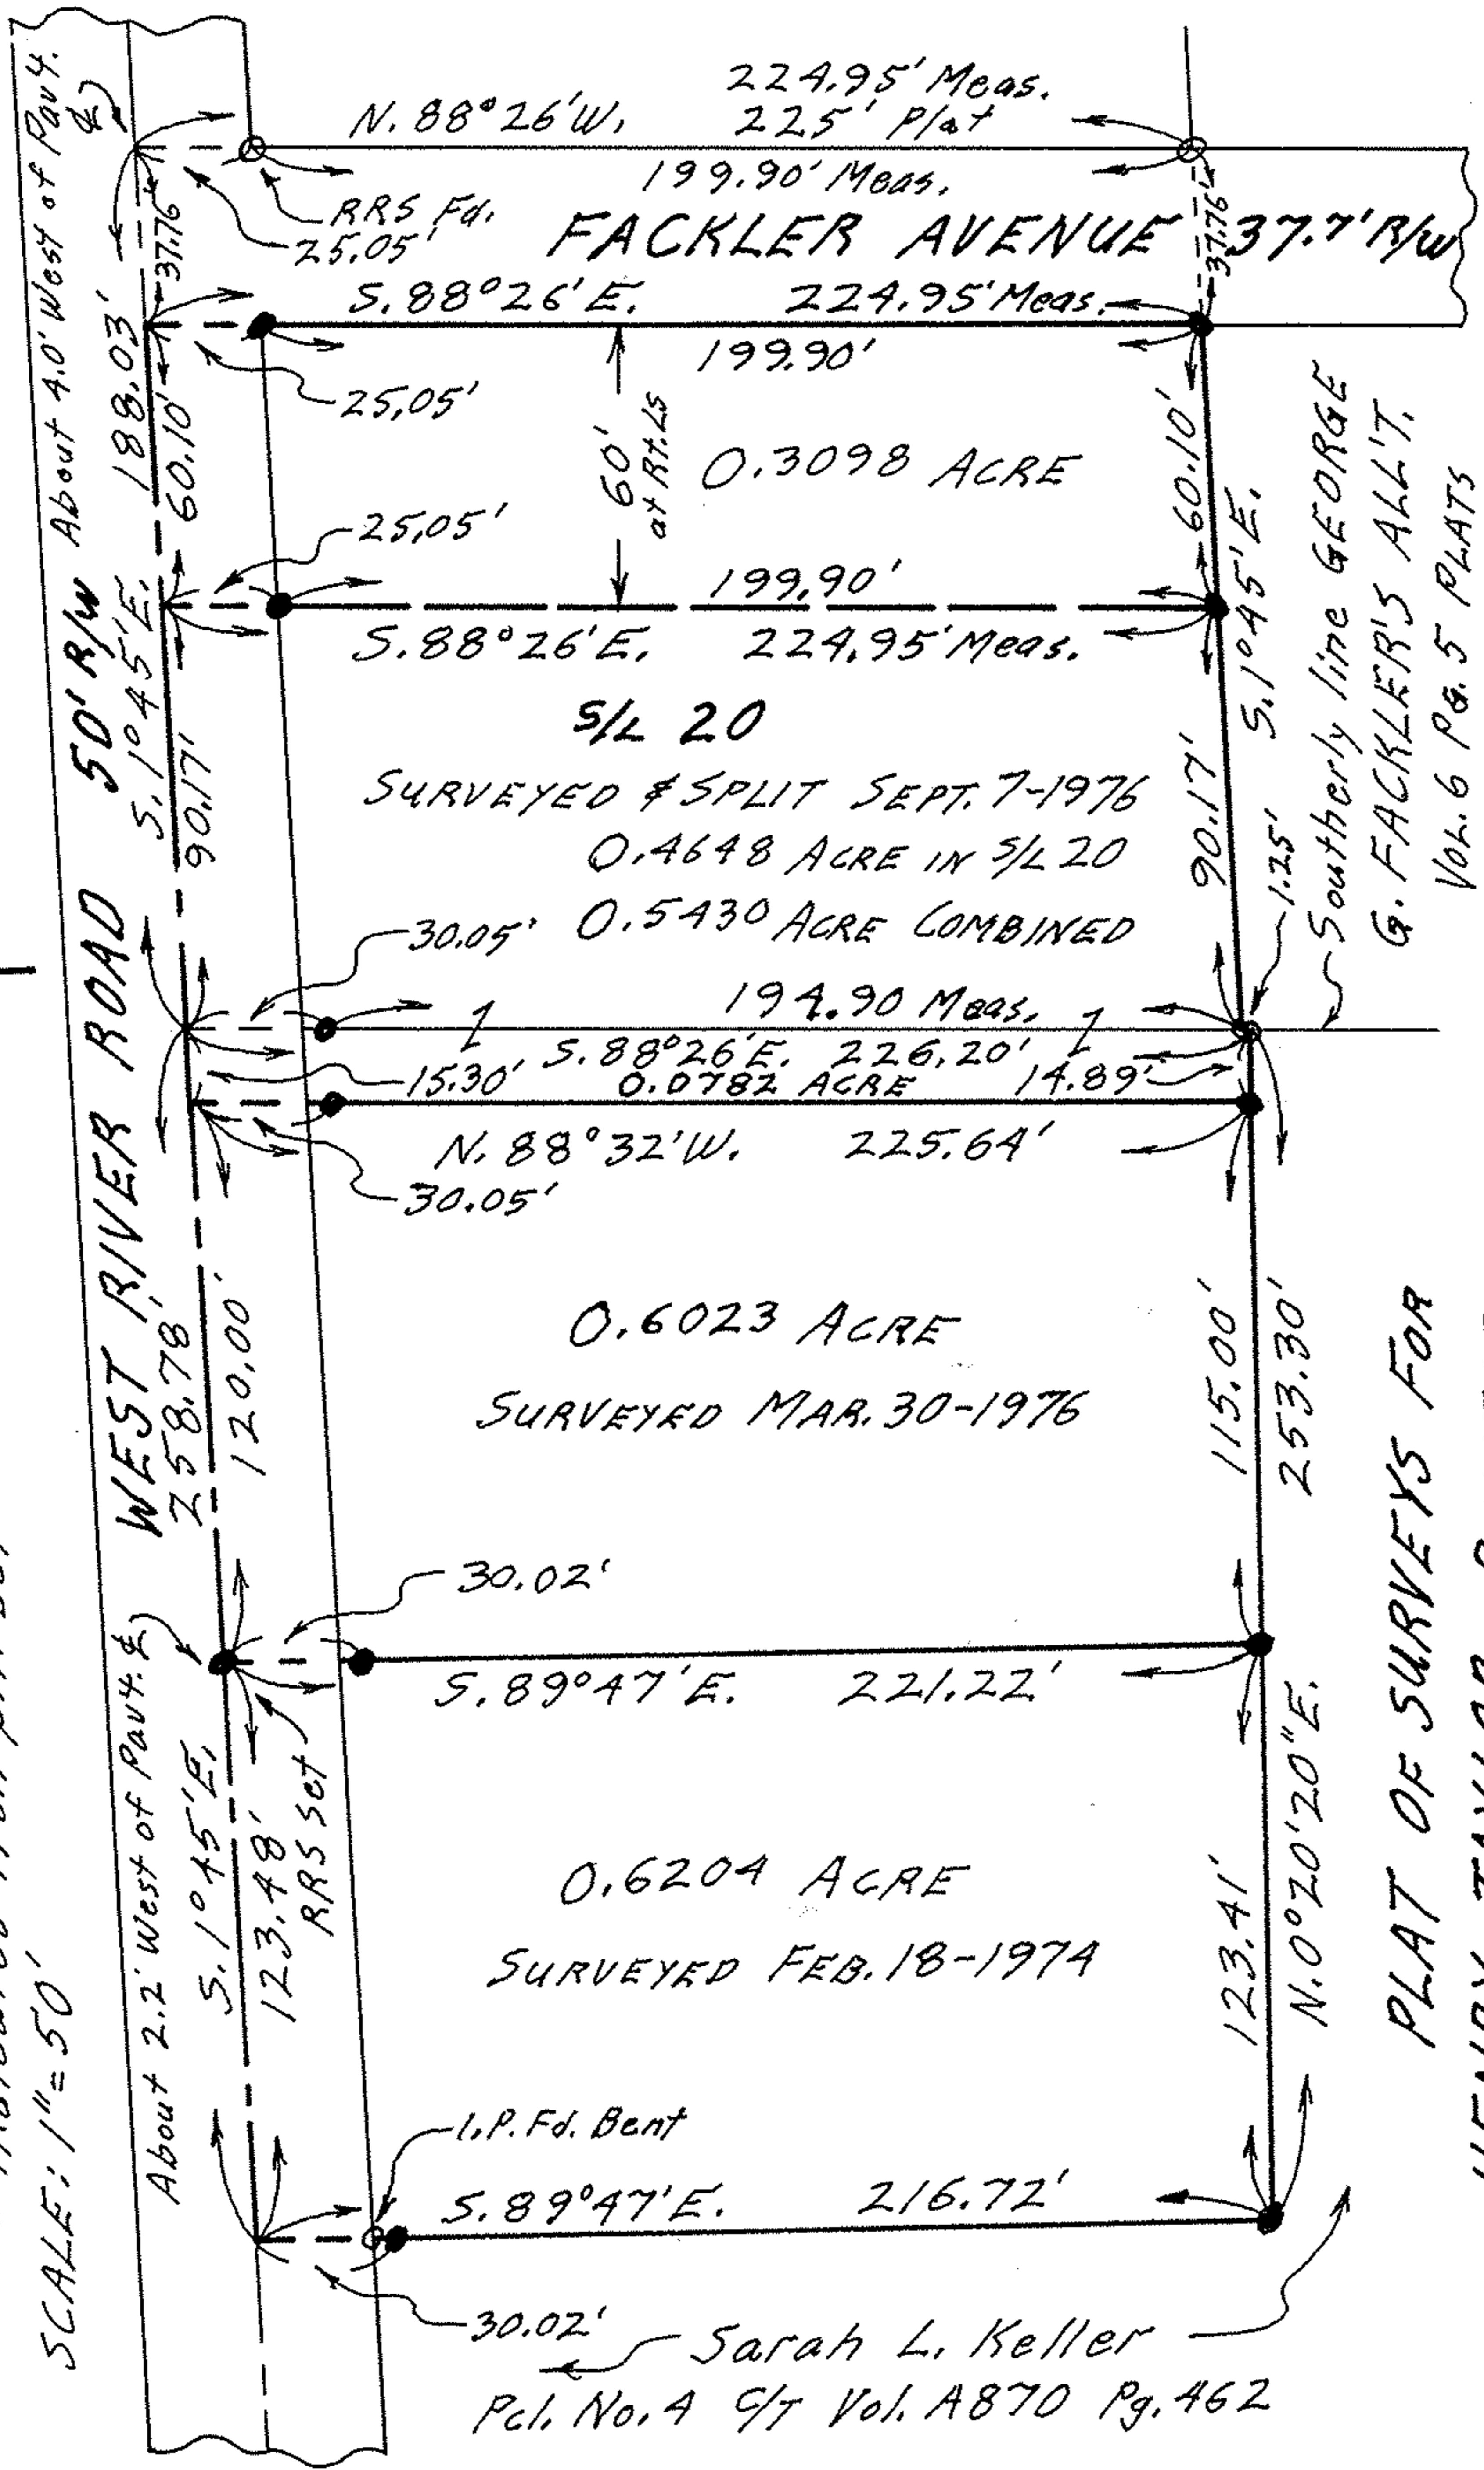 About 4.0' West of Pav't. ℄
N. 88°26'W.
224.95' Meas.
225' Plat
199.90' Meas.
RRS Fd.
25.05'
37.76'
37.76'
FACKLER AVENUE 37.7' R/W
S. 88°26'E. 224.95' Meas.
199.90'
25.05'
188.03'
60.10'
60'
at Rt. Ls
0.3098 ACRE
60.10'
25.05'
199.90'
S. 88°26'E. 224.95' Meas.
WEST RIVER ROAD 50' R/W
S. 1°45'E.
90.17'
S/L 20
SURVEYED & SPLIT SEPT. 7-1976
0.4648 ACRE IN S/L 20
0.5430 ACRE COMBINED
90.17'
S. 1°45'E.
1.25'
Southerly line GEORGE
G. FACKLER'S ALL'T.
VOL. 6 PG. 5 PLATS
30.05'
194.90 Meas.
S. 88°26'E. 226.20'
15.30'
0.0782 ACRE
14.89'
N. 88°32'W. 225.64'
30.05'
258.78'
120.00'
0.6023 ACRE
SURVEYED MAR. 30-1976
115.00'
253.30'
30.02'
S. 89°47'E. 221.22'
About 2.2' West of Pav't. ℄
S. 1°45'E.
123.48'
RRS Set
0.6204 ACRE
SURVEYED FEB. 18-1974
123.41'
N. 0°20'20"E.
I.P. Fd. Bent
S. 89°47'E. 216.72'
30.02'
Sarah L. Keller
Pcl. No. 4 C/T Vol. A870 Pg. 462
SCALE: 1"=50'
PLAT OF SURVEYS FOR
HENRY TAYLOR